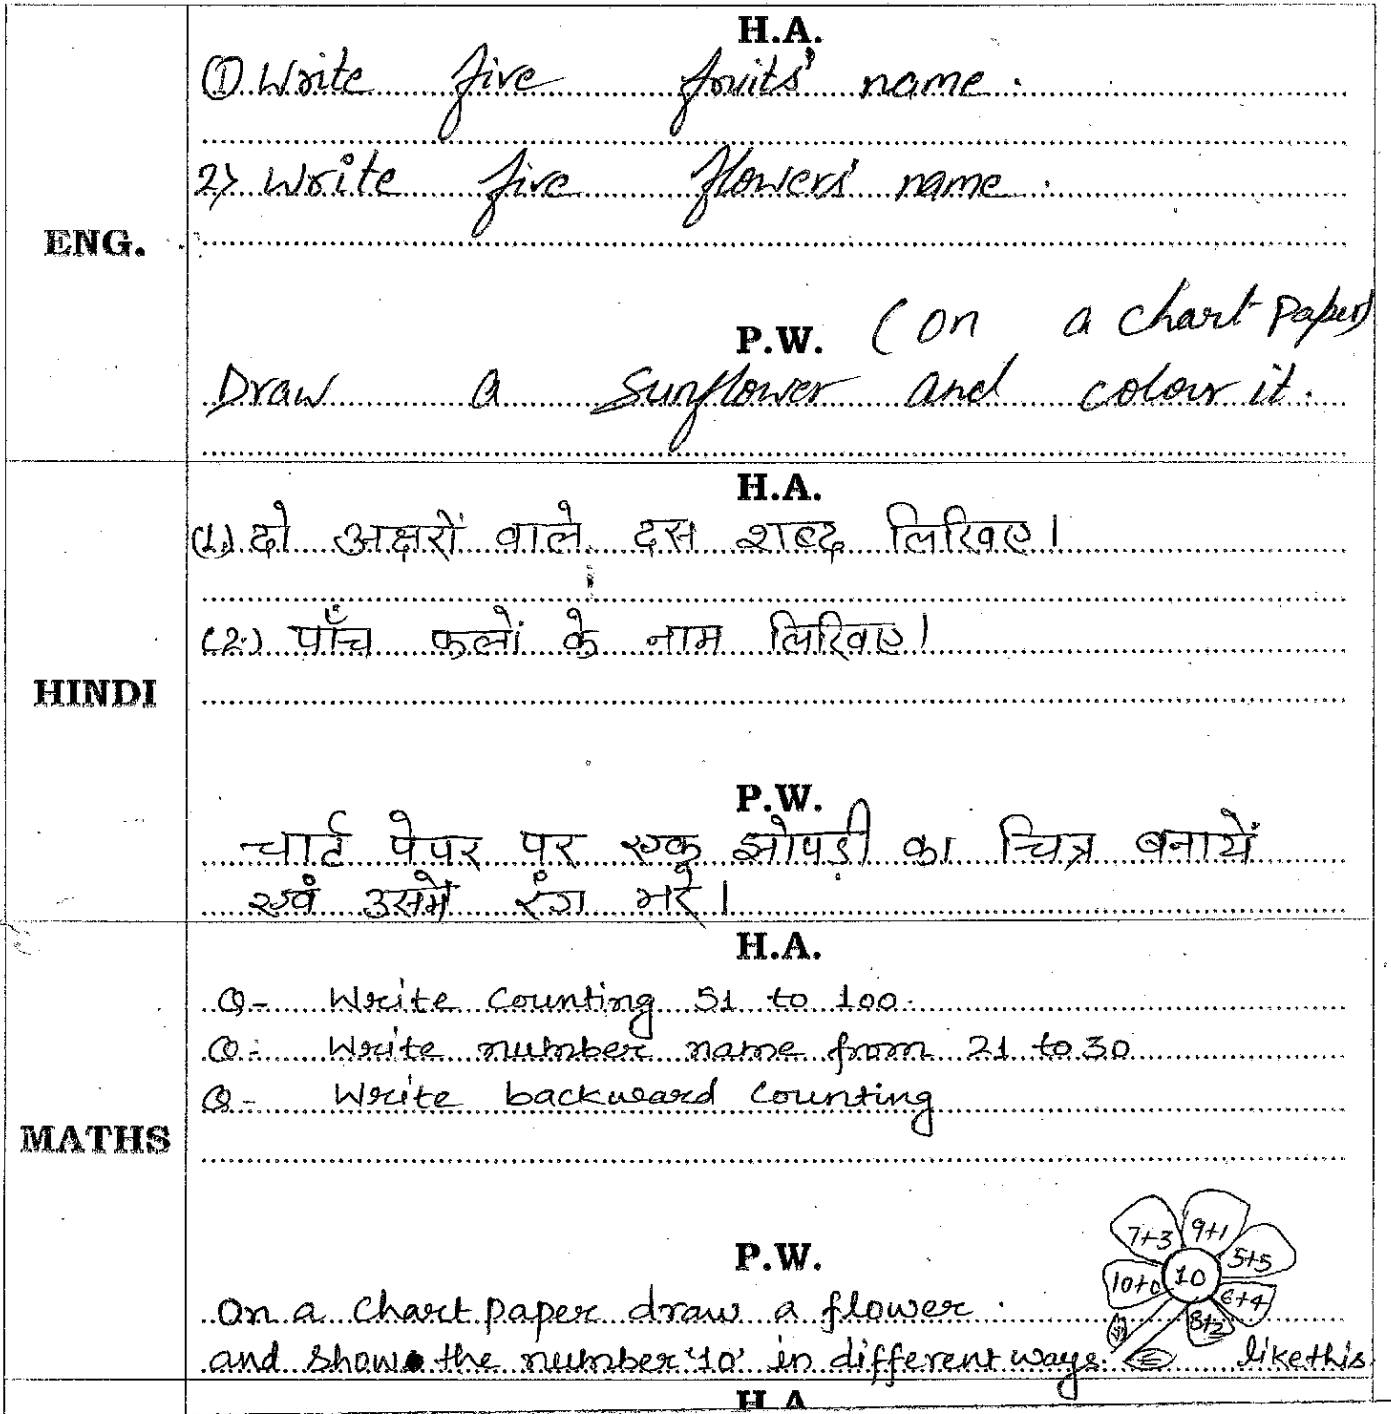 H.A.
① Write five fruits' name.
2) Write five flowers' name.
ENG.
P.W. (on a chart paper)
Draw a Sunflower and colour it.
H.A.
(1.) दो अक्षरों वाले दस शब्द लिखिए।
(2.) पाँच फलों के नाम लिखिए।
HINDI
P.W.
चार्ट पेपर पर एक झोपड़ी का चित्र बनायें
एवं उसमें रंग भरें।
H.A.
Q- Write Counting 51 to 100.
Q- Write number name from 21 to 30
Q- Write backward Counting
MATHS
P.W.
7+3 9+1
5+5
10+0 10
6+4
8+2
On a Chart paper draw a flower.
and show the number '10' in different ways. like this
H.A